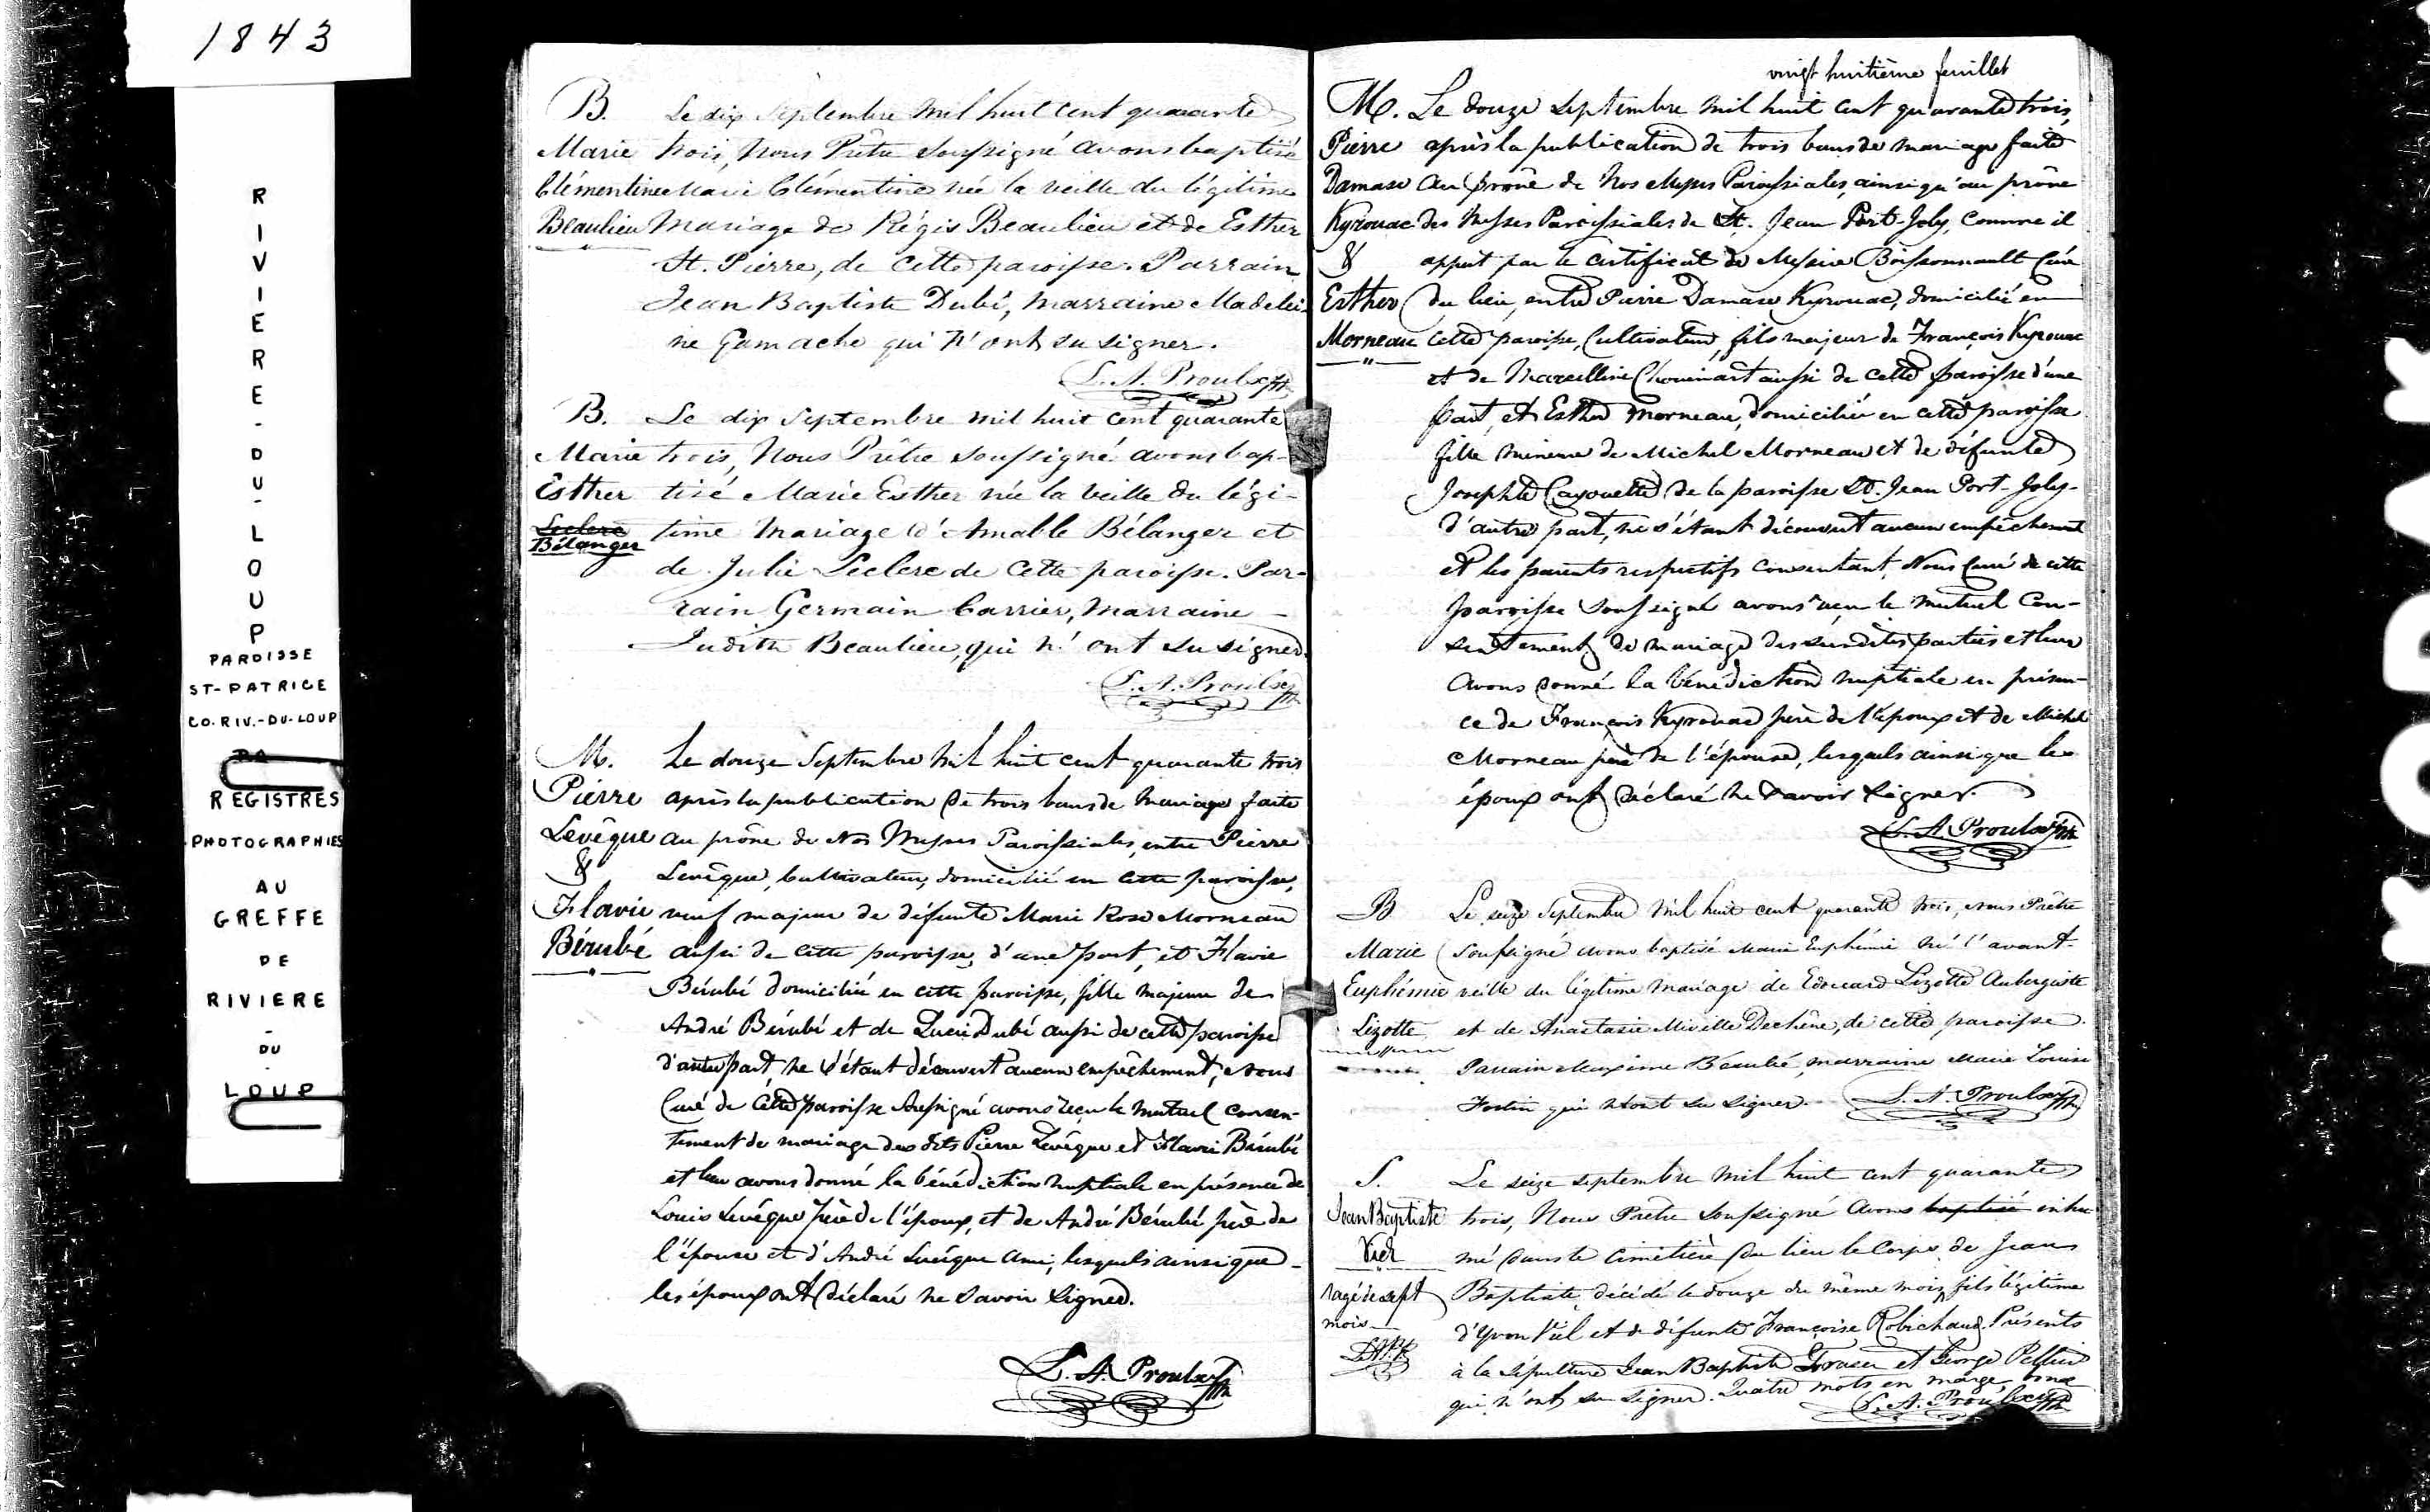 1843
RIVIERE-DU-LOUP
PAROISSE
ST-PATRICE
CO. RIV.-DU-LOUP
REGISTRES
PHOTOGRAPHIES
AU
GREFFE
DE
RIVIERE
-
DU
-
LOUP
B. Le dix Septembre mil huit cent quarante
Marie trois, Nous Prêtre soussigné avons baptisé
Clémentine Marie Clémentine née la veille du légitime
Beaulieu Mariage de Régis Beaulieu et de Esther
St. Pierre, de cette paroisse. Parrain
Jean Baptiste Dubé, Marraine Madelei-
ne Gamache qui n'ont su signer.
L. A. Proulx Ptre
B. Le dix Septembre mil huit cent quarante
Marie trois, Nous Prêtre soussigné avons bap-
Esther tisé Marie Esther née la veille du légi-
Leclerc
Bélanger time Mariage d'Amable Bélanger et
de Julie Leclerc de Cette paroisse. Par-
rain Germain Carrier, Marraine
Judith Beaulieu, qui n'ont su signer.
L. A. Proulx Ptre
M. Le douze Septembre mil huit cent quarante trois
Pierre après la publication de trois bans de Mariage faite
Levêque au prône de Nos Messes Paroissiales, entre Pierre
& Levêque, Cultivateur, domicilié en cette paroisse,
Flavie veuf majeur de défunte Marie Rose Morneau
Bérubé aussi de cette paroisse, d'une part, et Flavie
Bérubé domiciliée en cette paroisse, fille majeure de
André Bérubé et de Lucie Dubé aussi de cette paroisse
d'autre part, ne s'étant découvert aucun empêchement, Nous
Curé de Cette paroisse soussigné avons reçu le mutuel Consen-
tement de mariage des dits Pierre Levêque et Flavie Bérubé
et leur avons donné la bénédiction nuptiale en présence de
Louis Levêque Père de l'époux, et de André Bérubé père de
l'épouse et d'André Levêque Ami, lesquels ainsi que
les époux ont déclaré ne savoir signer.
L. A. Proulx Ptre
vingt huitième feuillet
M. Le douze Septembre mil huit cent quarante trois,
Pierre après la publication de trois bans de mariage faite
Damase au prône de Nos Messes Paroissiales, ainsi qu'au prône
Kyrouac des Messes Paroissiales de St. Jean Port-Joly, comme il
& appert par le certificat de Messire Boissonnault Curé
Esther du lieu, entre Pierre Damase Kyrouac, domicilié en
Morneau cette paroisse, Cultivateur, fils majeur de François Kyrouac
et de Marcelline Chouinart aussi de cette paroisse d'une
part, et Esther Morneau, domiciliée en cette paroisse
fille mineure de Michel Morneau et de défunte
Josephte Cayouette de la paroisse St. Jean Port-Joly-
d'autre part, ne s'étant découvert aucun empêchement
et les parents respectifs consentant, Nous Curé de cette
paroisse soussigné avons reçu le mutuel Con-
sentement de mariage des susdites parties et leur
avons donné la bénédiction nuptiale en présen-
ce de François Kyrouac père de l'époux et de Michel
Morneau père de l'épouse, lesquels ainsi que les
époux ont déclaré ne savoir signer.
L. A. Proulx Ptre
B Le seize Septembre mil huit cent quarante trois, Nous Prêtre
Marie soussigné avons baptisé Marie Euphémie née l'avant-
Euphémie veille du légitime mariage de Edouard Lizotte Aubergiste
Lizotte et de Anastasie Miville Dechêne, de cette paroisse.
Parrain Maxime Bérubé, marraine Marie Louise
Fortin qui n'ont su signer. L. A. Proulx Ptre
S. Le seize septembre mil huit cent quarante
Jean Baptiste trois, Nous Prêtre soussigné avons baptisé inhu
Viel mé dans le Cimetière du lieu le Corps de Jean
agé de sept Baptiste, décédé le douze du même mois, fils légitime
mois d'Yvon Viel et de défunte Françoise Robichaud. Présents
L.A.P. à la sépulture Jean Baptiste Fraser et George Pelletier
qui n'ont su signer. Quatre mots en marge bons
L. A. Proulx Ptre